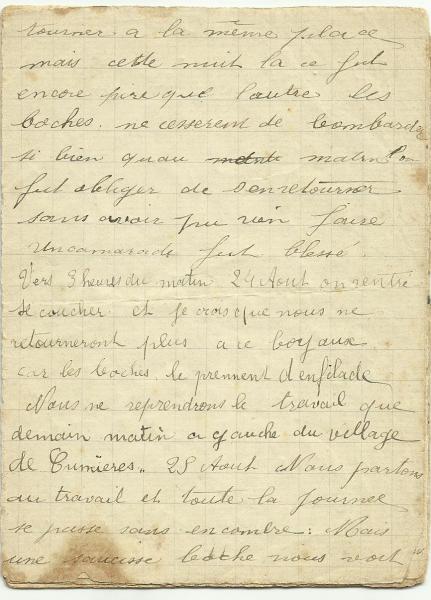 tourner a la même place
mais cette nuit la ce fut
encore pire que l'autre les
boches. ne cesserent de bombarder
si bien quau matin l'on
fut obliger de s'enretourner
sans avoir pu rien faire
Uncamarade fut blessé.
Vers 3 heures du matin 24 Aout on rentre
se coucher et je crois que nous ne
retourneront plus a ce boyaux
car les boches le prennent d'enfilade
Nous ne reprendrons le travail que
demain matin a gauche du village
de Cumières,, 25 Aout Nous partons
au travail et toute la journee
se passe sans encombre: Mais
une saucisse boche nous voit